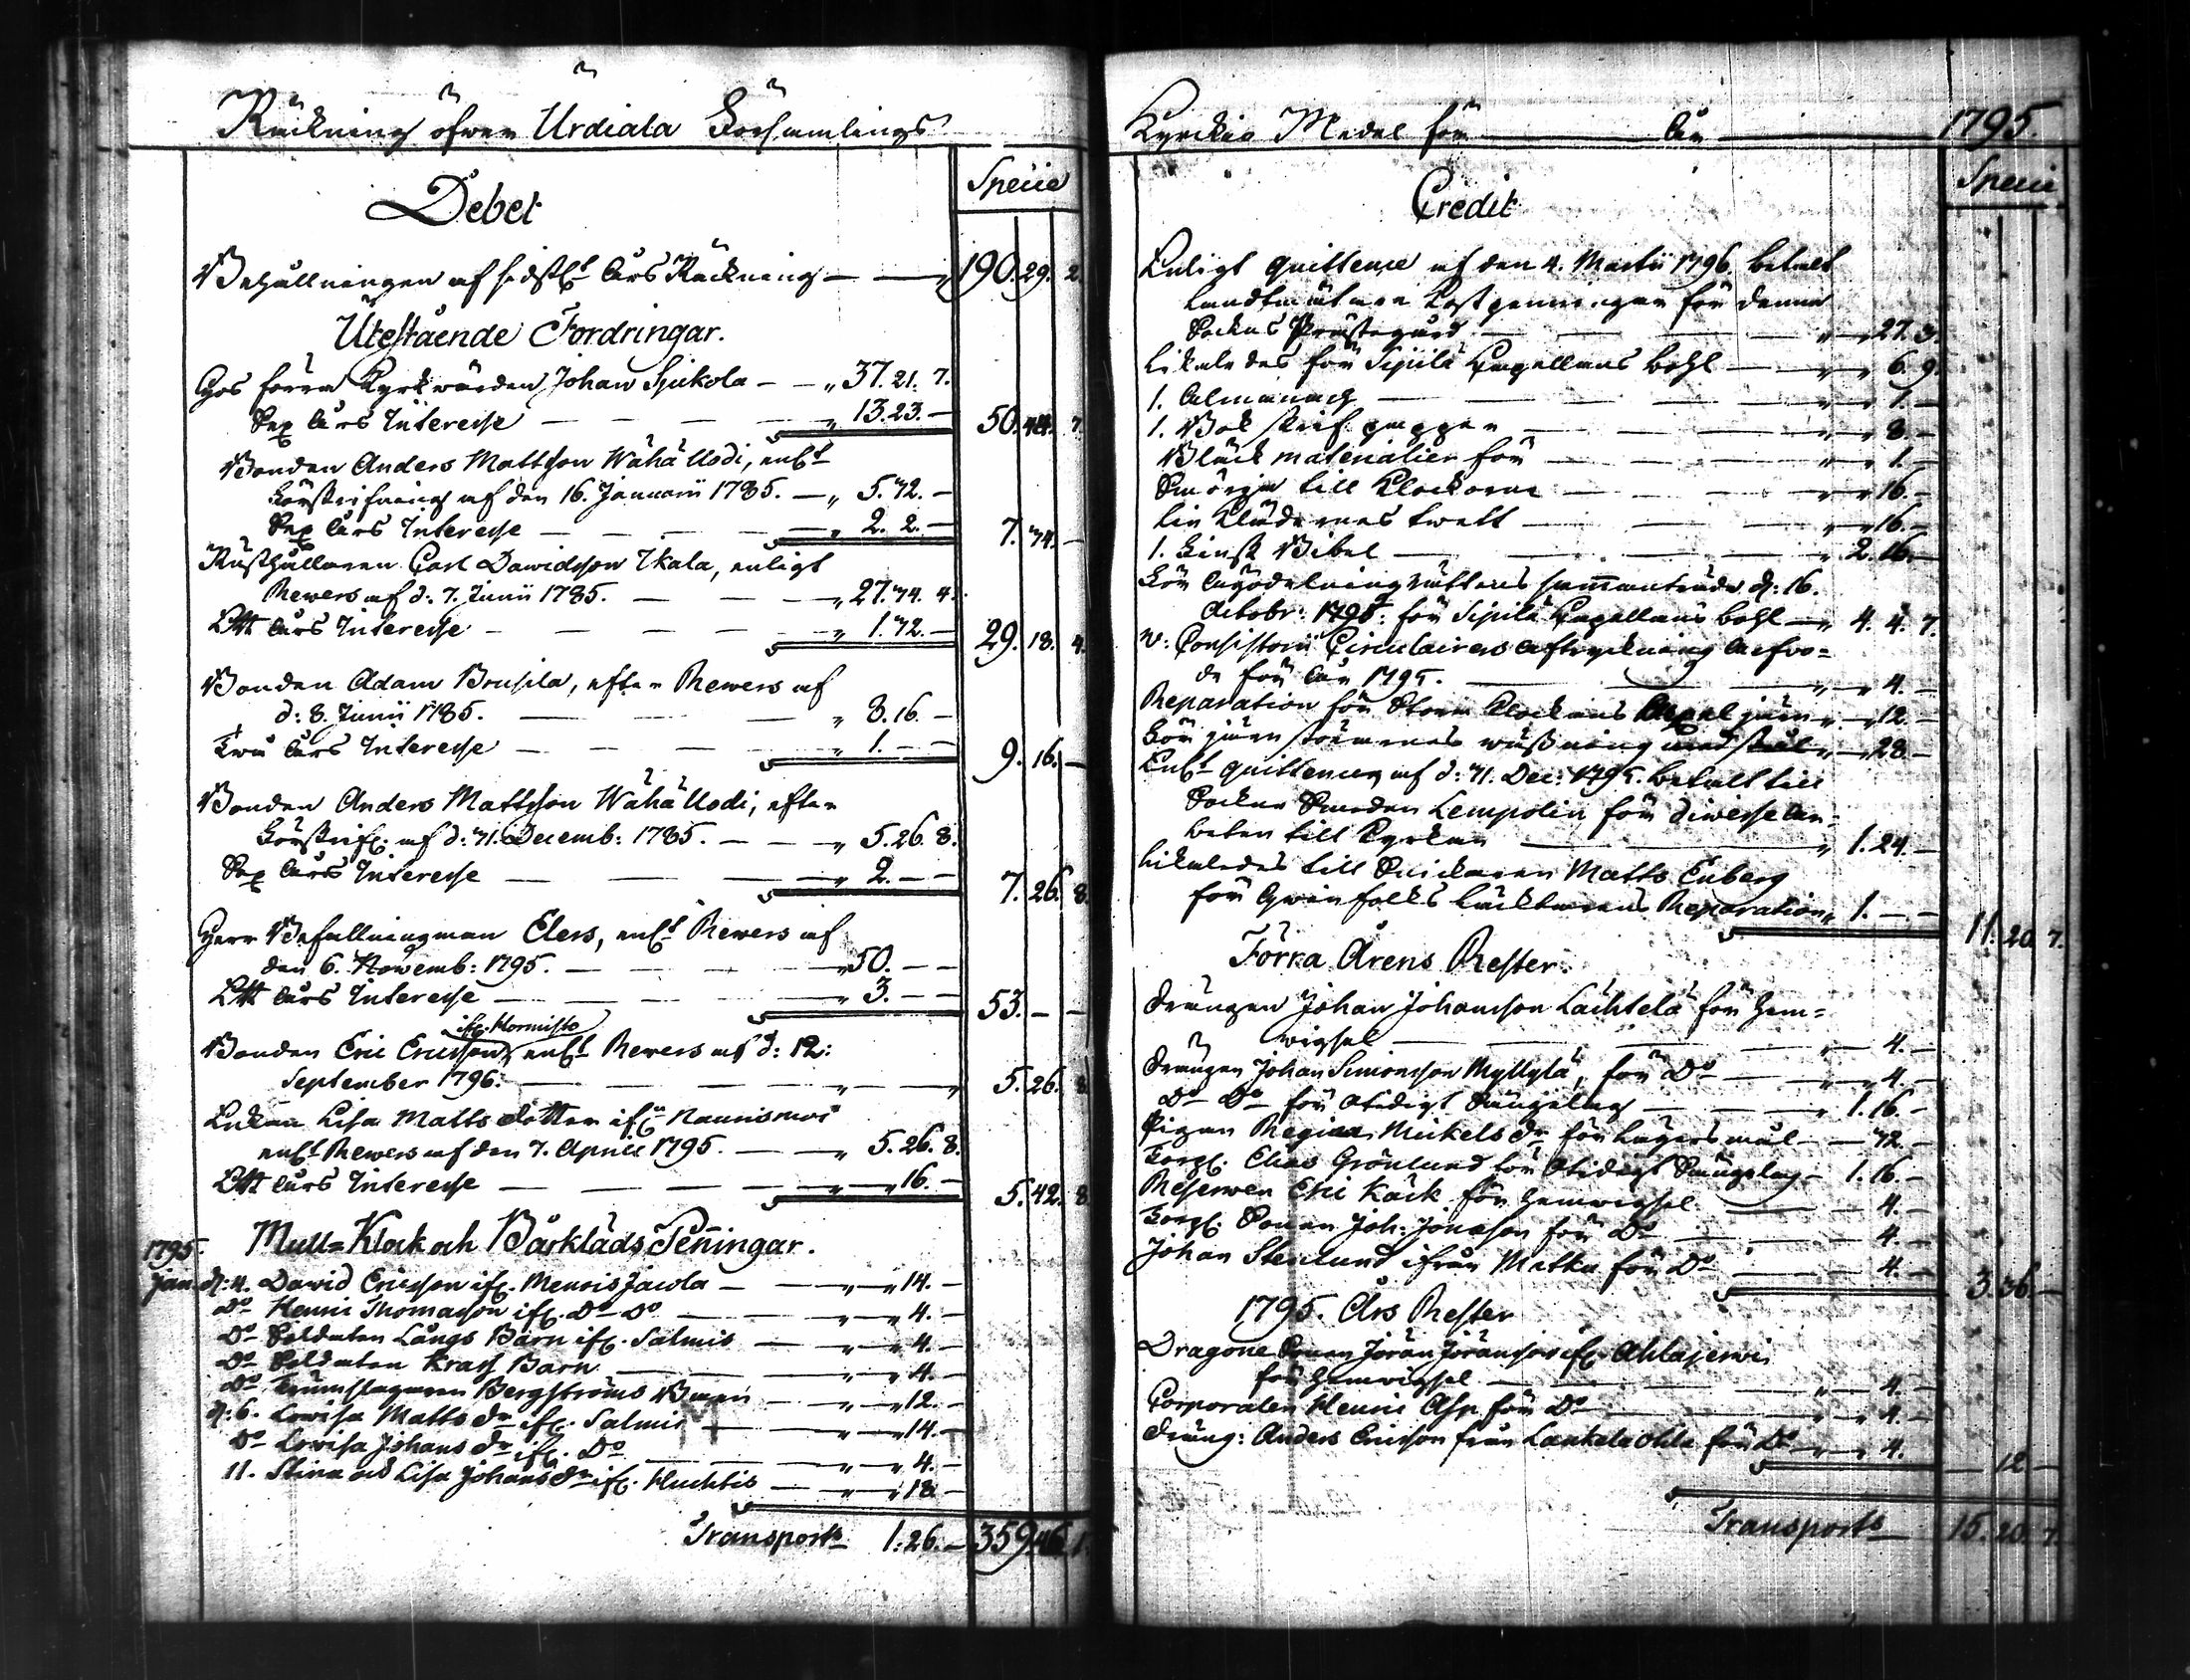 Räckning öfwer Urdiala Församlings
Debet
Specie
Behållningen af sidstl: Års Räckning — — " 190. 29. 2.
Utestående Fordringar.
Hos förra Kyrkwärden Johan Spukola — — " 37. 21. 7.
Sex Års Interesse — — — " 13. 23. — 50. 44. 7.
Bonden Anders Mattsson Wähä Uodi, enl:t
Förskrifning af den 16. Januarii 1785. — " 5. 32. —
Sex Års Interesse — — — " 2. 2. — 7. 34. —
Rusthållaren Carl Dawidsson Ikala, enligt
Rewers af d: 7. Junii 1785. — — — " 27. 34. 4.
Ett Års Interesse — — — — " 1. 32. — 29. 18. 4.
Bonden Adam Brusila, efter Rewers af
d: 8. Junii 1785. — — — " 8. 16. —
Twå Års Interesse — — — " 1. — — 9. 16. —
Bonden Anders Mattsson Wähä Uodi, efter
Förskrif: af d: 31. Decemb: 1785. — — " 5. 26. 8.
Sex Års Interesse — — — " 2. — — 7. 26. 8.
Herr Befallningsman Elers, enl:t Rewers af
den 6. Nowemb: 1795. — — — " 50. — —
Ett Års Interesse — — — " 3. — — 53. — —
ifr. Hormisto
Bonden Eric Ericsson, enl:t Rewers af d: 12:
September 1796. — — — " — " 5. 26. 8.
Enkan Lisa Matts dotter ifr: Naunismås
enl:t Rewers af den 7. April 1795. — — " 5. 26. 8.
Ett Års Interesse — — — " — " 16. — 5. 42. 8.
Mull= Klock och Bårkläds Peñingar.
1795.
Jan. d: 4. Dawid Ericsson ifr. Menois Jacola — — " — " 14. —
D:o Henric Thomasson ifr. D:o D:o — — " — " 4. —
D:o Soldaten Långs Barn ifr. Salmis — " — " 4. —
D:o Soldaten Krass Barn — — " — " 4. —
D:o Trumslagaren Bergströms Barn — " — " 12. —
d: 6. Lowisa Matts dr ifr. Salmis — — " — " 14. —
D:o Lowisa Johans dr ifr. D:o — — " — " 4. —
11. Stina och Lisa Johans dr ifr. Huchtis — " — " 18. —
Transport 1: 26. — 359. 46. 1.
Kyrckio Medel för — År — 1795.
Credit
Specie
Enligt quittence af den 4. Martii 1796. betalt
Landtmätare Kostpenningar för denna
Sockns Prästegård — — — " — " 27. 3.
Likaledes för Sipilä Capellans bohl — " — " 6. 9.
1. Almanach — — — " — " 1. —
1. Bok skrif papper — — — " — " 8. —
Bläck materialier för — — — " — " 1. —
Smörja till Klockorne — — — " — " 16. —
Lin Klädernes twätt — — — " — " 16. —
1. Finsk Bibel — — — " 2. 16. —
För Ägodelningsrättens sam̄anträde d: 16.
Octobr: 1795. för Sipilä Capellans bohl — " 4. 4. 7.
w: Consistorii Circulairers aftryckning Arfvo=
de för År 1795. — — — " — " 4. —
Reparation för Stora Klockans Axel järn " — " 12. —
För järn störernes wäßning med stål " — " 28. —
Enl:t quittence, af d: 31. Dec: 1795. betalt till
Sockne Smeden Lempolin för diwerse Ar=
beten till Kyrkan — — " 1. 24. —
Likaledes till Snickaren Matts Enberg
för Qwinfolks Läcktarens Reparation " 1. — — 11. 20. 7.
Förra Årens Rester.
Drängen Johan Johansson Lächtelä för Hem=
wigsel — — — " — 4. —
Drängen Johan Simonsson Myllylä, för D:o — " — " 4. —
D:o D:o för Otidigt Sängelag — — " 1. 16. —
Pigan Regina Mickels dr för Lägersmål — — 32. —
Torp. Elias Grönlund för Otidigt Sängelag — 1. 16. —
Reserwen Eric Käck för Hemwigsel — — 4. —
Torp. Sonen Joh: Jönsson för D:o — — 4. —
Johan Stenlund ifrån Matku för D:o — — 4. — 3. 36. —
1795. Års Rester
Dragone Sonen Jöran Jöransson ifr. Ahlajerwi
för Hemwigsel — — " — 4. —
Corporalen Henric Asp för D:o — — " — " 4. —
Dräng: Anders Ericsson från Laukela Ohla för D:o " — " 4. — — 12 —
Transport 15. 20. 7.